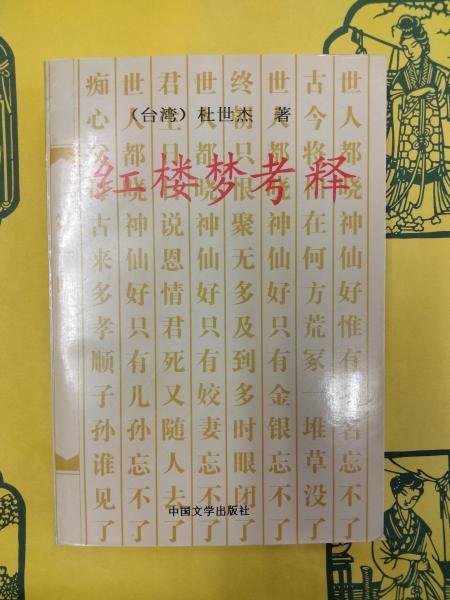 （台湾）杜世杰 著
红楼梦考释
世人都晓神仙好惟有名忘不了
古今将在何方荒冢一堆草没了
世人都晓神仙好只有金银忘不了
终只恨聚无多及到多时眼闭了
世人都晓神仙好只有姣妻忘不了
君生日说恩情君死又随人去了
世人都晓神仙好只有儿孙忘不了
痴心古来多孝顺子孙谁见了
中国文学出版社